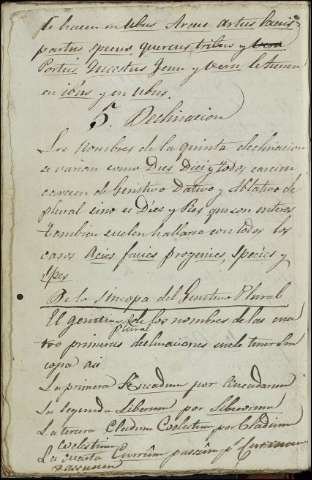 se hacen en Ubus Arcus Artus Lacus
partus specus quercus tribus y
Portus, Questus Genu y Veru, le tienen
en ibus y en Ubus.
5. Declinacion
Los Nombres de la quinta declinacion
se varian como Dies Diei y todos carecen
carecen de Genitivo Dativo y Ablativo de
plural sino es Dies y Res que son enteros
tambien suelen hallarse con todos los
casos Acies facies progenies, Species y
Spes
De la Sincopa del Genitivo Plural
El genitivo plural de los nombres de las cua
tro primeras declinaciones suele tener Sin
copa asi
La primera por
La segunda Liberum por Liberorum
La tercera Cladum Coelestum por Cladium
coelestium
La cuarta Currum passum pr Curruum
passuum